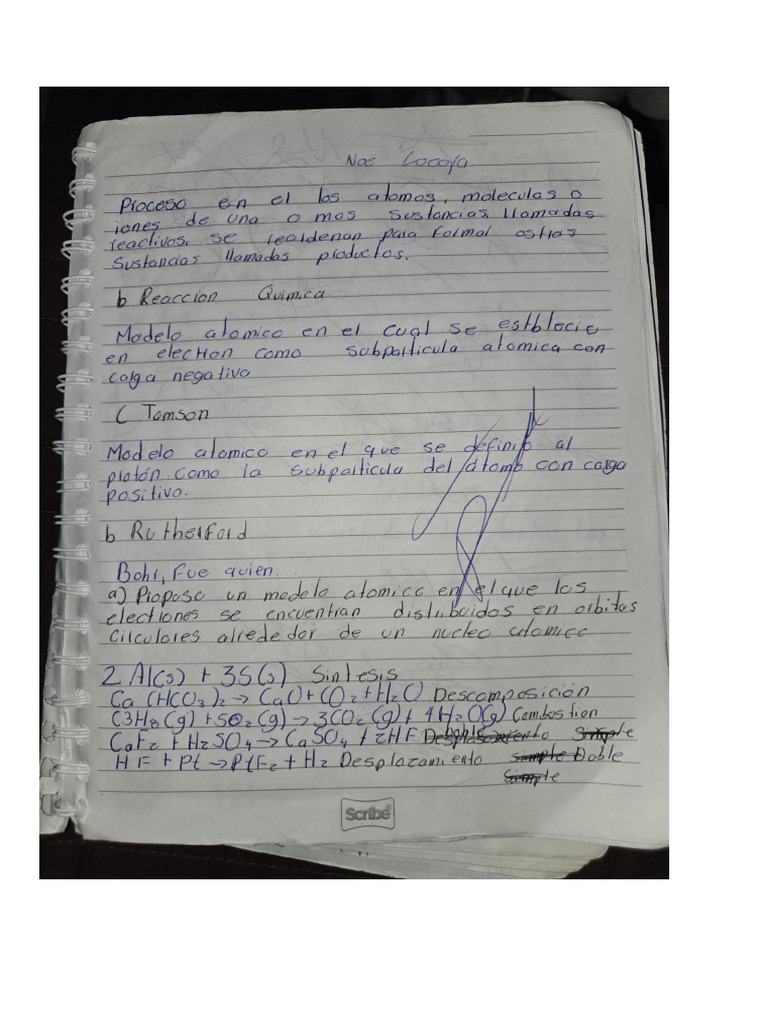 Noé Zocoya
Proceso en el los atomos, moleculas o
iones de una o mas sustancias llamadas
reactivos, se reordenan para formar ostras
sustancias llamadas productos.
b Reaccion Quimica
Modelo atomico en el cual se estblecio
en electron como subparticula atomica con
carga negativa
C Tomson
Modelo atomico en el que se definio al
protón como la subparticula del atomo con carga
positiva.
b Rutherford
Bohr, Fue quien...
a) Proposo un modelo atomico en el que los
electrones se encuentran distribuidos en orbitas
circulares alrededor de un nucleo atomico
2 Al(s) + 3S(s) Sintesis
Ca (HCO3)2 → CaO + CO2 + H2O Descomposición
C3H8(g) + 5O2(g) → 3CO2(g) + 4H2O(g) Combustion
CaF2 + H2SO4 → CaSO4 + 2HF Doble Desplasamiento Simple
HF + Pt → PtF2 + H2 Desplazamiento simple Doble
Simple
Scribe